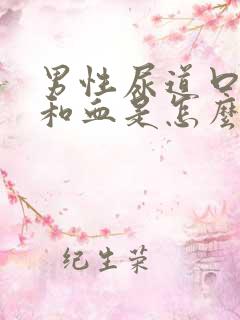 男性尿道口
和血是怎麼
纪生荣